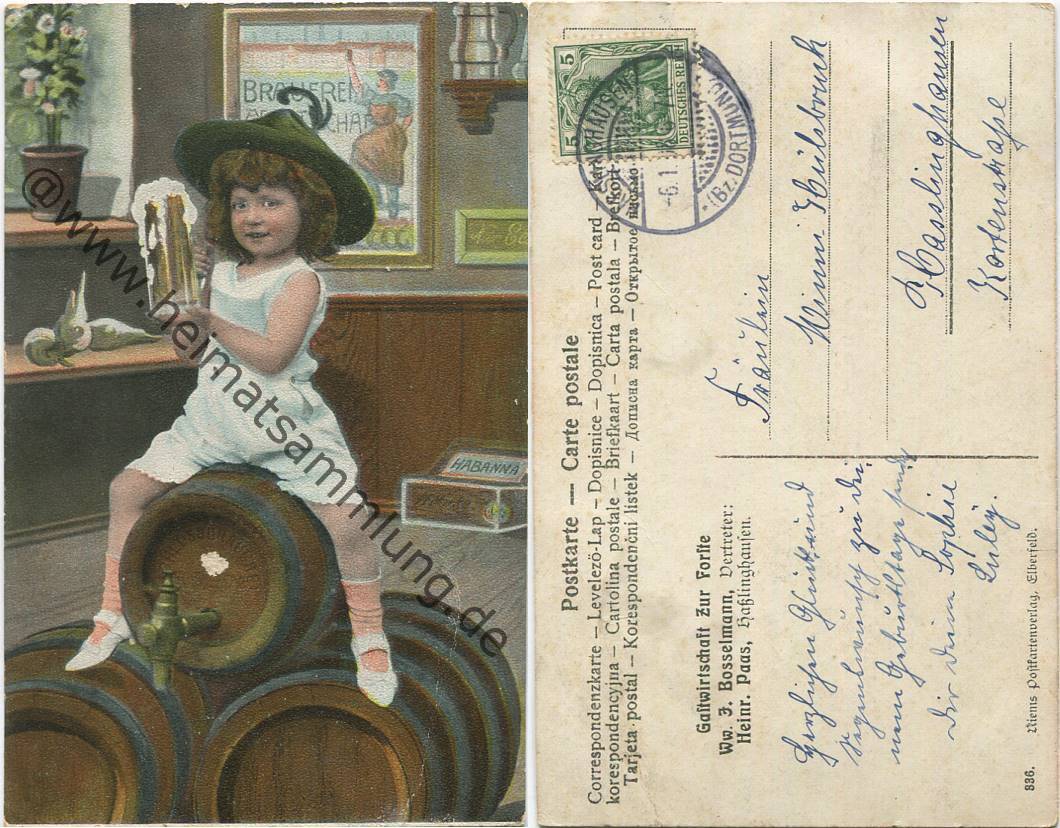 BRAUEREI
HABANNA
@www.heimatsammlung.de
5
5
DEUTSCHES REICH
(Bz. DORTMUND)
-6.1
Postkarte — Carte postale
Correspondenzkarte — Levelező-Lap — Dopisnice — Dopisnica — Post card —
korespondencyjna — Cartolina postale — Briefkaart — Carta postala — Brefkort
Tarjeta postal — Korespondenční listek — Дописна карта — Открытое письмо
Gastwirtschaft zur Forste
Ww. J. Bosselmann, Vertreter:
Heinr. Paas, Haßlinghausen.
Herzlichen Glückund
Segenswunsch zu dei
nem Geburtstage sendet
dir deine Sophie
Luley.
Fräulein
Winni Hülsbruch
Hasslinghausen
Kortenstraße
336.
Niems Postkartenverlag, Elberfeld.